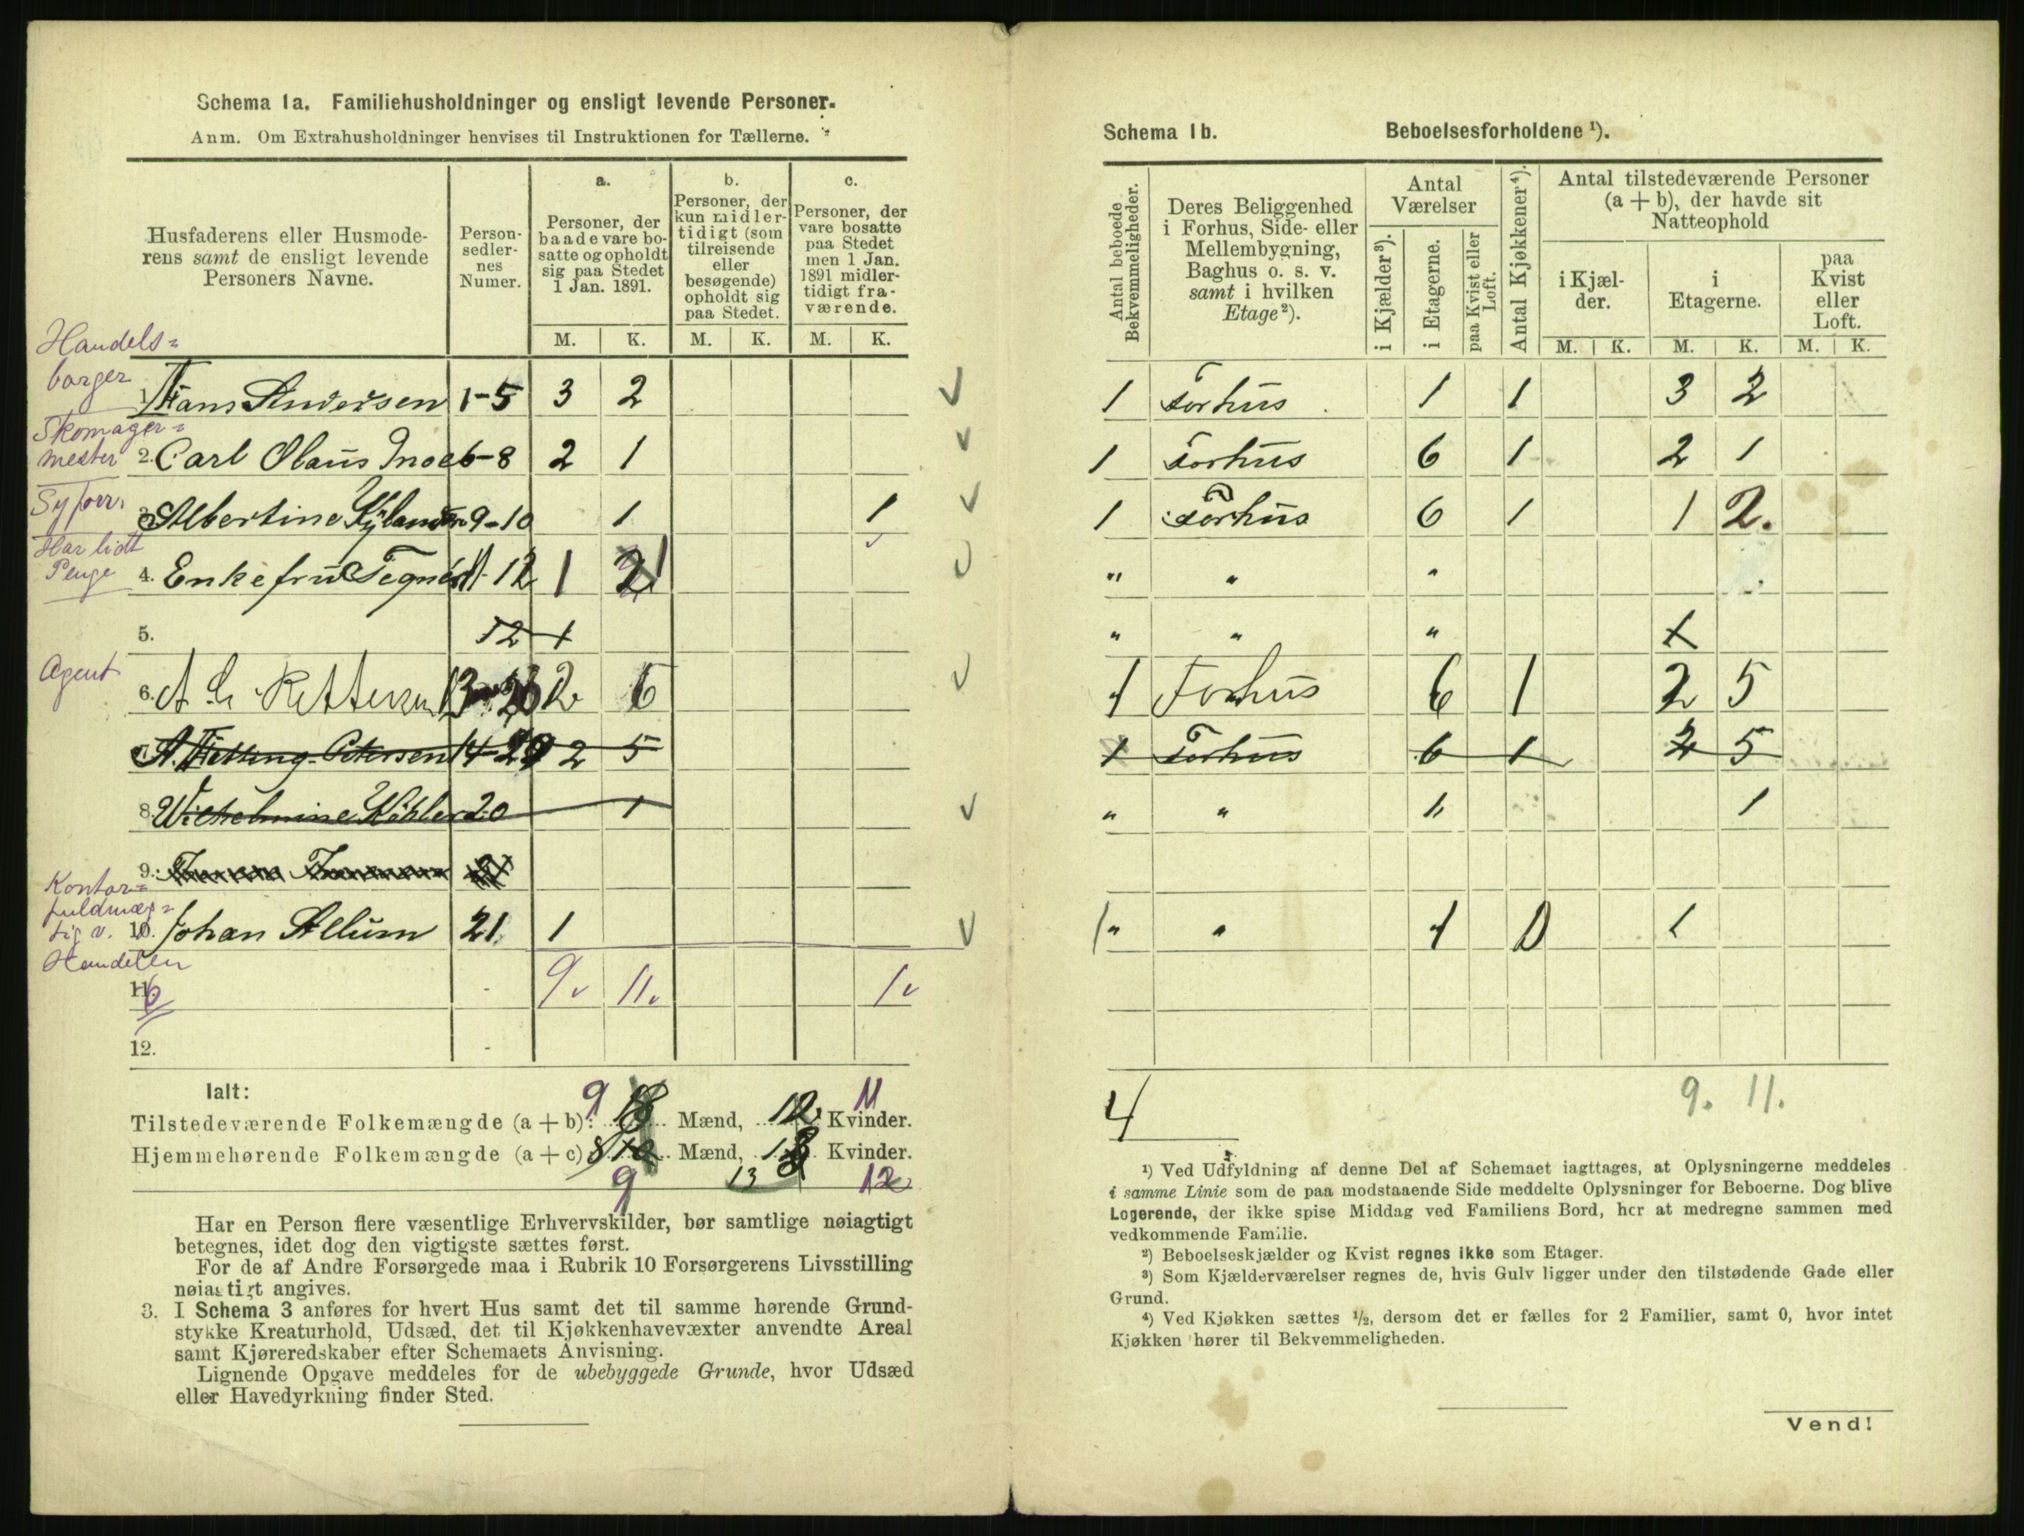 Schema 1a. Familiehusholdninger og ensligt levende Personer.
Anm. Om Extrahusholdninger henvises til Instruktionen for Tællerne.
Husfaderens eller Husmoderens samt de ensligt levende Personers Navne.
Personsedlernes Numer.
a.
Personer, der baade vare bosatte og opholdt sig paa Stedet 1 Jan. 1891.
b.
Personer, der kun midlertidigt (som tilreisende eller besøgende) opholdt sig paa Stedet.
c.
Personer, der vare bosatte paa Stedet men 1 Jan. 1891 midlertidigt fraværende.
M. K. M. K. M. K.
Handels=
borger
1. Hans Andersen 1-5 3 2
Skomager=
mester
2. Carl Olaus Moe 6-8 2 1
Syforr.
3. Albertine 9-10 1 1
Har lidt
Penge
4. Enkefru Tegnér 11-12 1 2 1
5. 12 1
Agent
6. 13 2 6
7. 14 2 5
8. Wilhelmine Köhler 20 1
9.
Kontor=
fuldmæg=
tig v.
Handelen
10. Johan Allum 21 1
11. 6 9 11 1
12.
Ialt:
Tilstedeværende Folkemængde (a + b): 9 18 Mænd, 12 11 Kvinder.
Hjemmehørende Folkemængde (a + c) 8 9 Mænd, 13 12 Kvinder.
Har en Person flere væsentlige Erhvervskilder, bør samtlige nøiagtigt
betegnes, idet dog den vigtigste sættes først.
For de af Andre Forsørgede maa i Rubrik 10 Forsørgerens Livsstilling
nøiagtigt angives.
3. I Schema 3 anføres for hvert Hus samt det til samme hørende Grund-
stykke Kreaturhold, Udsæd, det til Kjøkkenhavevæxter anvendte Areal
samt Kjøreredskaber efter Schemaets Anvisning.
Lignende Opgave meddeles for de ubebyggede Grunde, hvor Udsæd
eller Havedyrkning finder Sted.
Schema 1b. Beboelsesforholdene ¹).
Antal beboede Bekvemmeligheder.
Deres Beliggenhed i Forhus, Side- eller Mellembygning, Baghus o. s. v. samt i hvilken Etage²).
Antal Værelser
i Kjælder³).
i Etagerne.
paa Kvist eller Loft.
Antal Kjøkkener⁴).
Antal tilstedeværende Personer (a + b), der havde sit Natteophold
i Kjælder.
i Etagerne.
paa Kvist eller Loft.
M. K. M. K. M. K.
1 Forhus 1 1 3 2
1 Forhus 6 1 2 1
1 Forhus 6 1 1 2.
" " "
" " " 1
1 Forhus 6 1 2 5
1 Forhus 6 1 2 5
" " 1 1
1 " " 1 0 1
4 9. 11.
¹) Ved Udfyldning af denne Del af Schemaet iagttages, at Oplysningerne meddeles
i samme Linie som de paa modstaaende Side meddelte Oplysninger for Beboerne. Dog blive
Logerende, der ikke spise Middag ved Familiens Bord, her at medregne sammen med
vedkommende Familie.
²) Beboelseskjælder og Kvist regnes ikke som Etager.
³) Som Kjælderværelser regnes de, hvis Gulv ligger under den tilstødende Gade eller
Grund.
⁴) Ved Kjøkken sættes ½, dersom det er fælles for 2 Familier, samt 0, hvor intet
Kjøkken hører til Bekvemmeligheden.
Vend!